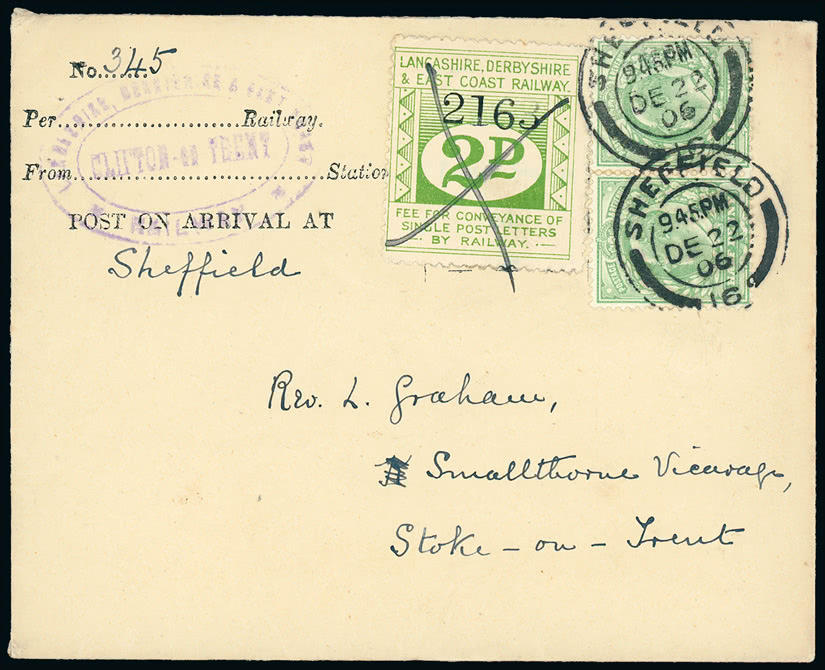 No. 345
Per Railway.
From Station
CLIFTON-ON TRENT
POST ON ARRIVAL AT
Sheffield
LANCASHIRE, DERBYSHIRE
& EAST COAST RAILWAY.
2163
2D
FEE FOR CONVEYANCE OF
SINGLE POST LETTERS
BY RAILWAY.
SHEFFIELD
9.45.PM
DE 22
06
SHEFFIELD
9.45.PM
DE 22
06
16
Rev. L. Graham,
Smallthorne Vicarage,
Stoke-on-Trent